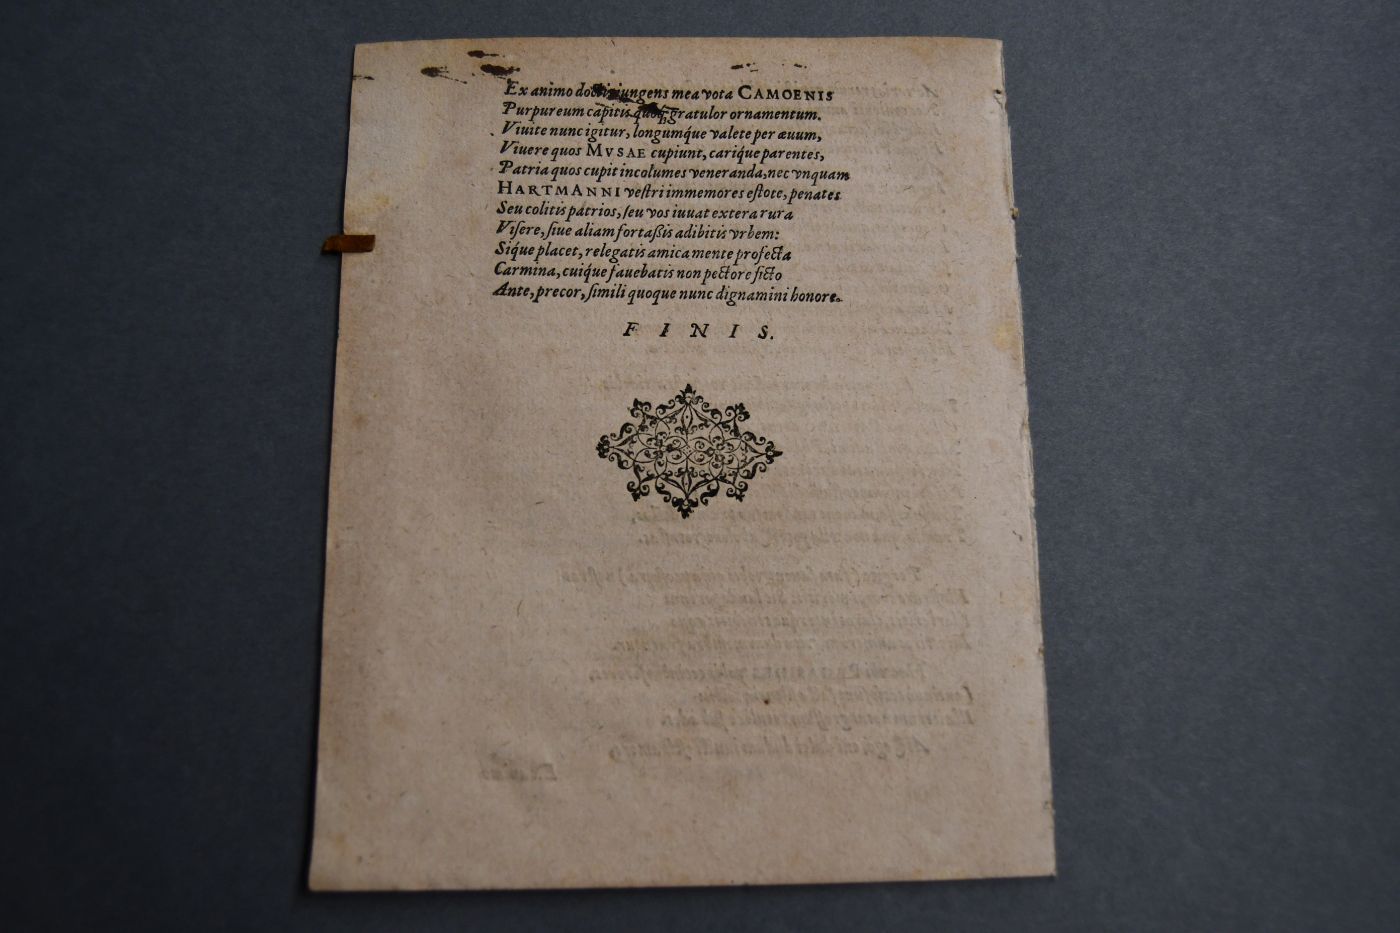 Ex animo doctis iungens mea vota CAMOENIS
Purpureum capitis quoq; gratulor ornamentum.
Viuite nunc igitur, longumq́ue valete per æuum,
Viuere quos MVSAE cupiunt, cariq́ue parentes,
Patria quos cupit incolumes veneranda, nec vnquam
HARTMANNI veſtri immemores eſtote, penates
Seu colitis patrios, ſeu vos iuuat extera rura
Viſere, ſiue aliam fortaßis adibitis vrbem:
Siq́ue placet, relegatis amica mente profecta
Carmina, cuiq́ue fauebatis non pectore ficto
Ante, precor, ſimili quoque nunc dignamini honore.
FINIS.